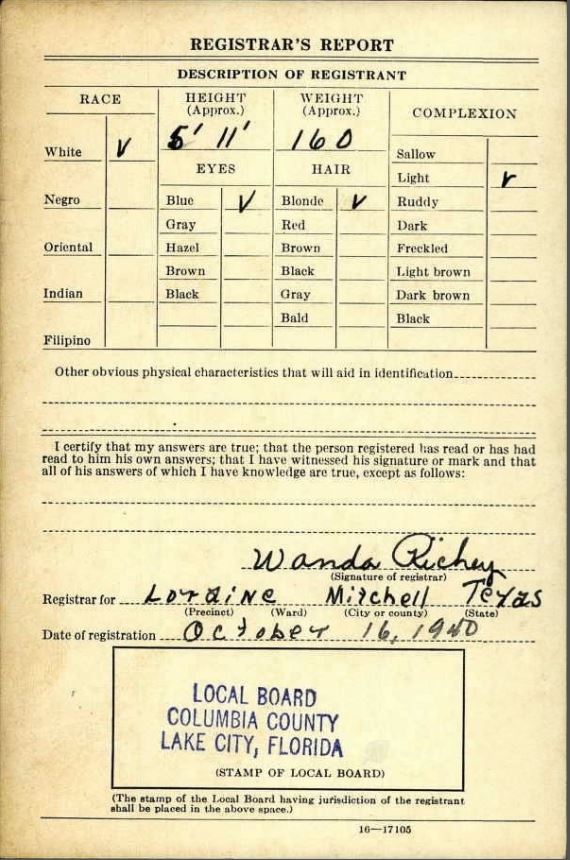 REGISTRAR'S REPORT
DESCRIPTION OF REGISTRANT
RACE
HEIGHT
(Approx.)
WEIGHT
(Approx.)
COMPLEXION
5' 11'
160
White
Sallow
EYES
HAIR
Light
Negro
Blue
Blonde
Ruddy
Gray
Red
Dark
Oriental
Hazel
Brown
Freckled
Brown
Black
Light brown
Indian
Black
Gray
Dark brown
Bald
Black
Filipino
Other obvious physical characteristics that will aid in identification
I certify that my answers are true; that the person registered has read or has had
read to him his own answers; that I have witnessed his signature or mark and that
all of his answers of which I have knowledge are true, except as follows:
Wanda Richey
(Signature of registrar)
Registrar for Loraine Mitchell Texas
(Precinct) (Ward) (City or county) (State)
Date of registration October 16, 1940
LOCAL BOARD
COLUMBIA COUNTY
LAKE CITY, FLORIDA
(STAMP OF LOCAL BOARD)
(The stamp of the Local Board having jurisdiction of the registrant
shall be placed in the above space.)
16—17105